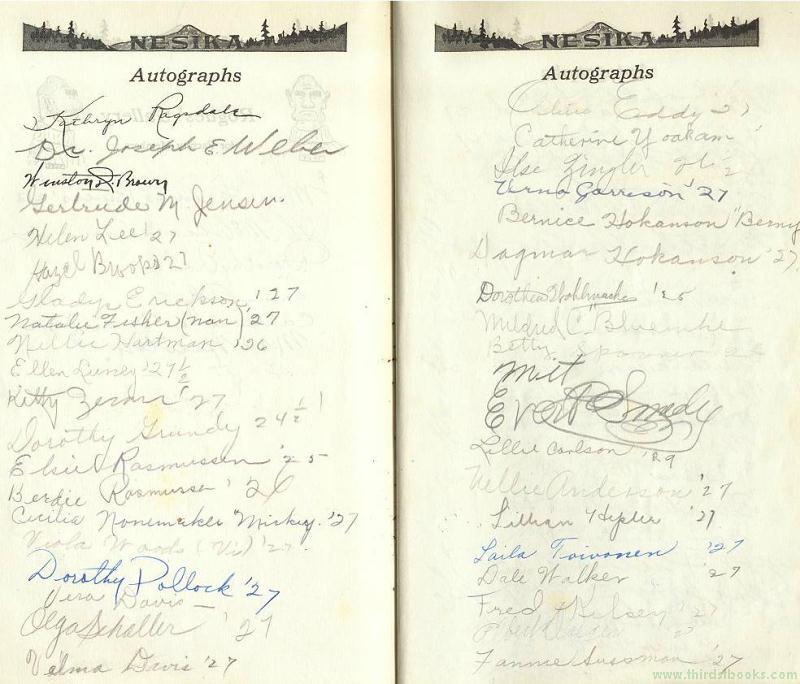 NESIKA
Autographs
Kathryn Ragsdale
Dr. Joseph E Weber
Winston D. Brown
Gertrude M Jensen.
Helen Lee '27
Hazel Brooks 27
Gladys Erickson '27
Natalie Fisher (nan) '27
Nellie Hartman '26
Ellen Luney '27½
Kitty '27
Dorothy Grundy 24½
Elsie Rasmussen '25
Berdie Rasmussen '26
Cecilia Nonemaker "Mickey." '27
Viola Woods (Vi) '27
Dorothy Pollock '27
Vera Davis —
Olga Schaller '27
Velma Davis '27
NESIKA
Autographs
Eddy 27
Catherine Yoakam
Ilse
Verna Garrison '27
Bernice Hokanson "Berny
Dagmar Hokanson '27
Dorothea
Mildred C.
Betty
Milt
Evert
Lillie Carlson '29
Nellie Anderson '27
Lillian Hepler '27
Laila Toivonen '27
Dale Walker '27
Fred Kelsey '27
Fannie Sussman '27
www.thirdstbooks.com